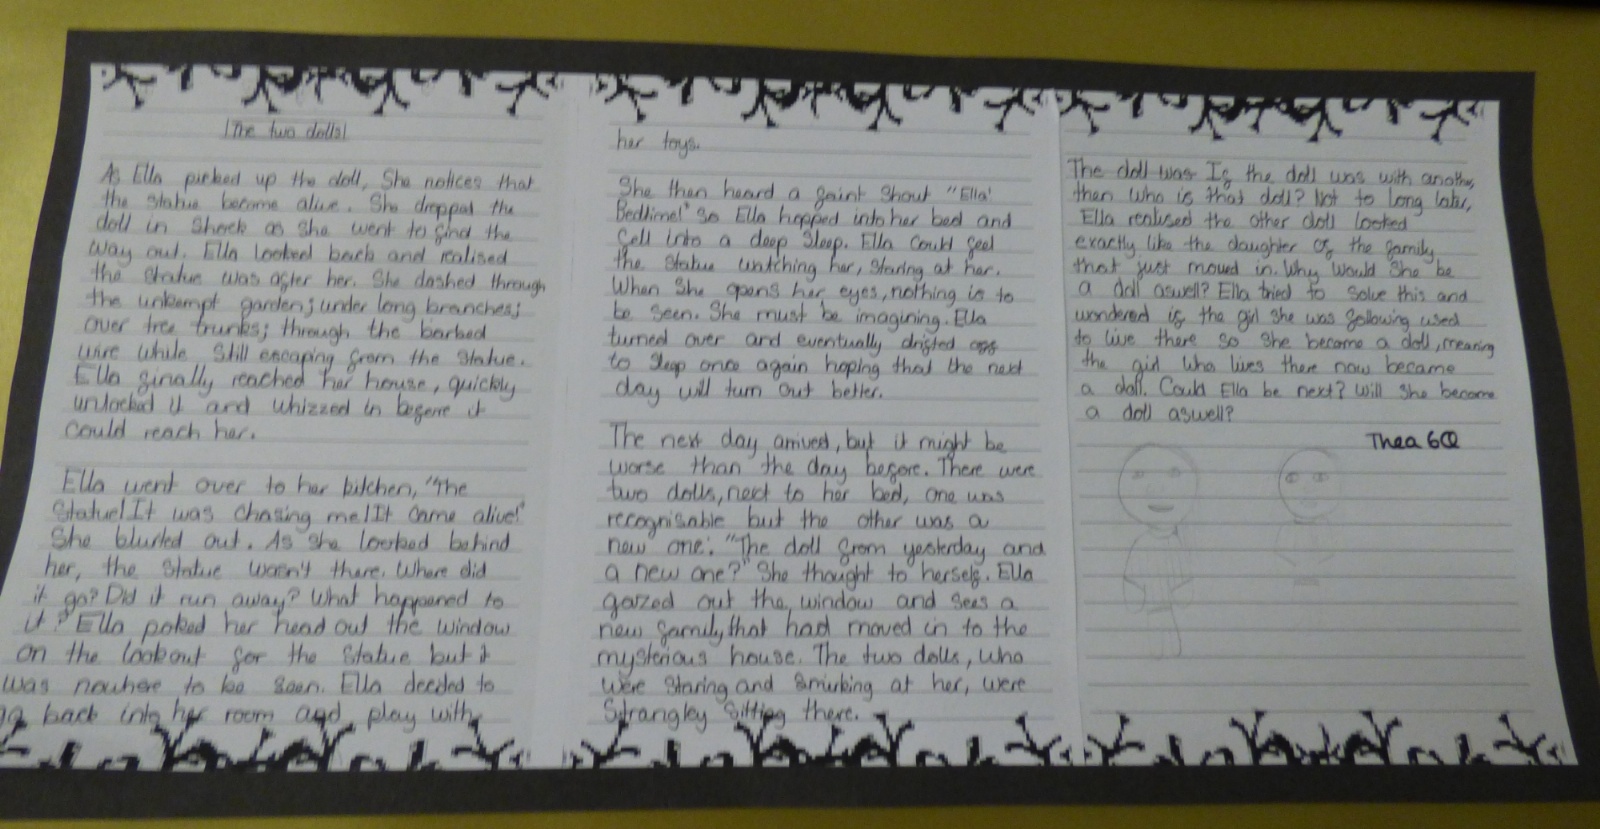 The two dolls
As Ella picked up the doll, She notices that
the statue become alive. She dropped the
doll in Shock as she went to find the
way out. Ella looked back and realised
the statue was after her. She dashed through
the unkempt garden; under long branches;
over tree trunks; through the barbed
wire while still escaping from the statue.
Ella finally reached her house, quickly
unlocked it and whizzed in before it
could reach her.
Ella went over to her kitchen, "The
Statue! It was chasing me! It came alive!"
She blurted out. As she looked behind
her, the statue wasn't there. Where did
it go? Did it run away? What happened to
it? Ella poked her head out the window
on the lookout for the statue but it
was nowhere to be seen. Ella decided to
go back into her room and play with
her toys.
She then heard a faint shout "Ella!
Bedtime!" So Ella hopped into her bed and
fell into a deep sleep. Ella could feel
the statue watching her, staring at her.
When she opens her eyes, nothing is to
be seen. She must be imagining. Ella
turned over and eventually drifted off
to sleep once again hoping that the next
day will turn out better.
The next day arrived, but it might be
worse than the day before. There were
two dolls, next to her bed, one was
recognisable but the other was a
new one. "The doll from yesterday and
a new one?" She thought to herself. Ella
gazed out the window and sees a
new family that had moved in to the
mysterious house. The two dolls, who
were staring and smirking at her, were
Strangley sitting there.
The doll was If the doll was with another,
then who is that doll? Not to long later,
Ella realised the other doll looked
exactly like the daughter of the family
that just moved in. Why would she be
a doll aswell? Ella tried to solve this and
wondered if the girl she was following used
to live there so she became a doll, meaning
the girl who lives there now became
a doll. Could Ella be next? Will she become
a doll aswell?
Thea 6Q